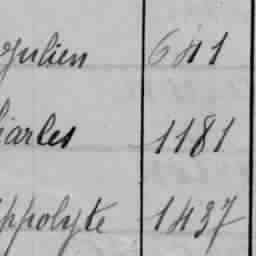 Julien 641
harles 1181
ippolyte 1437